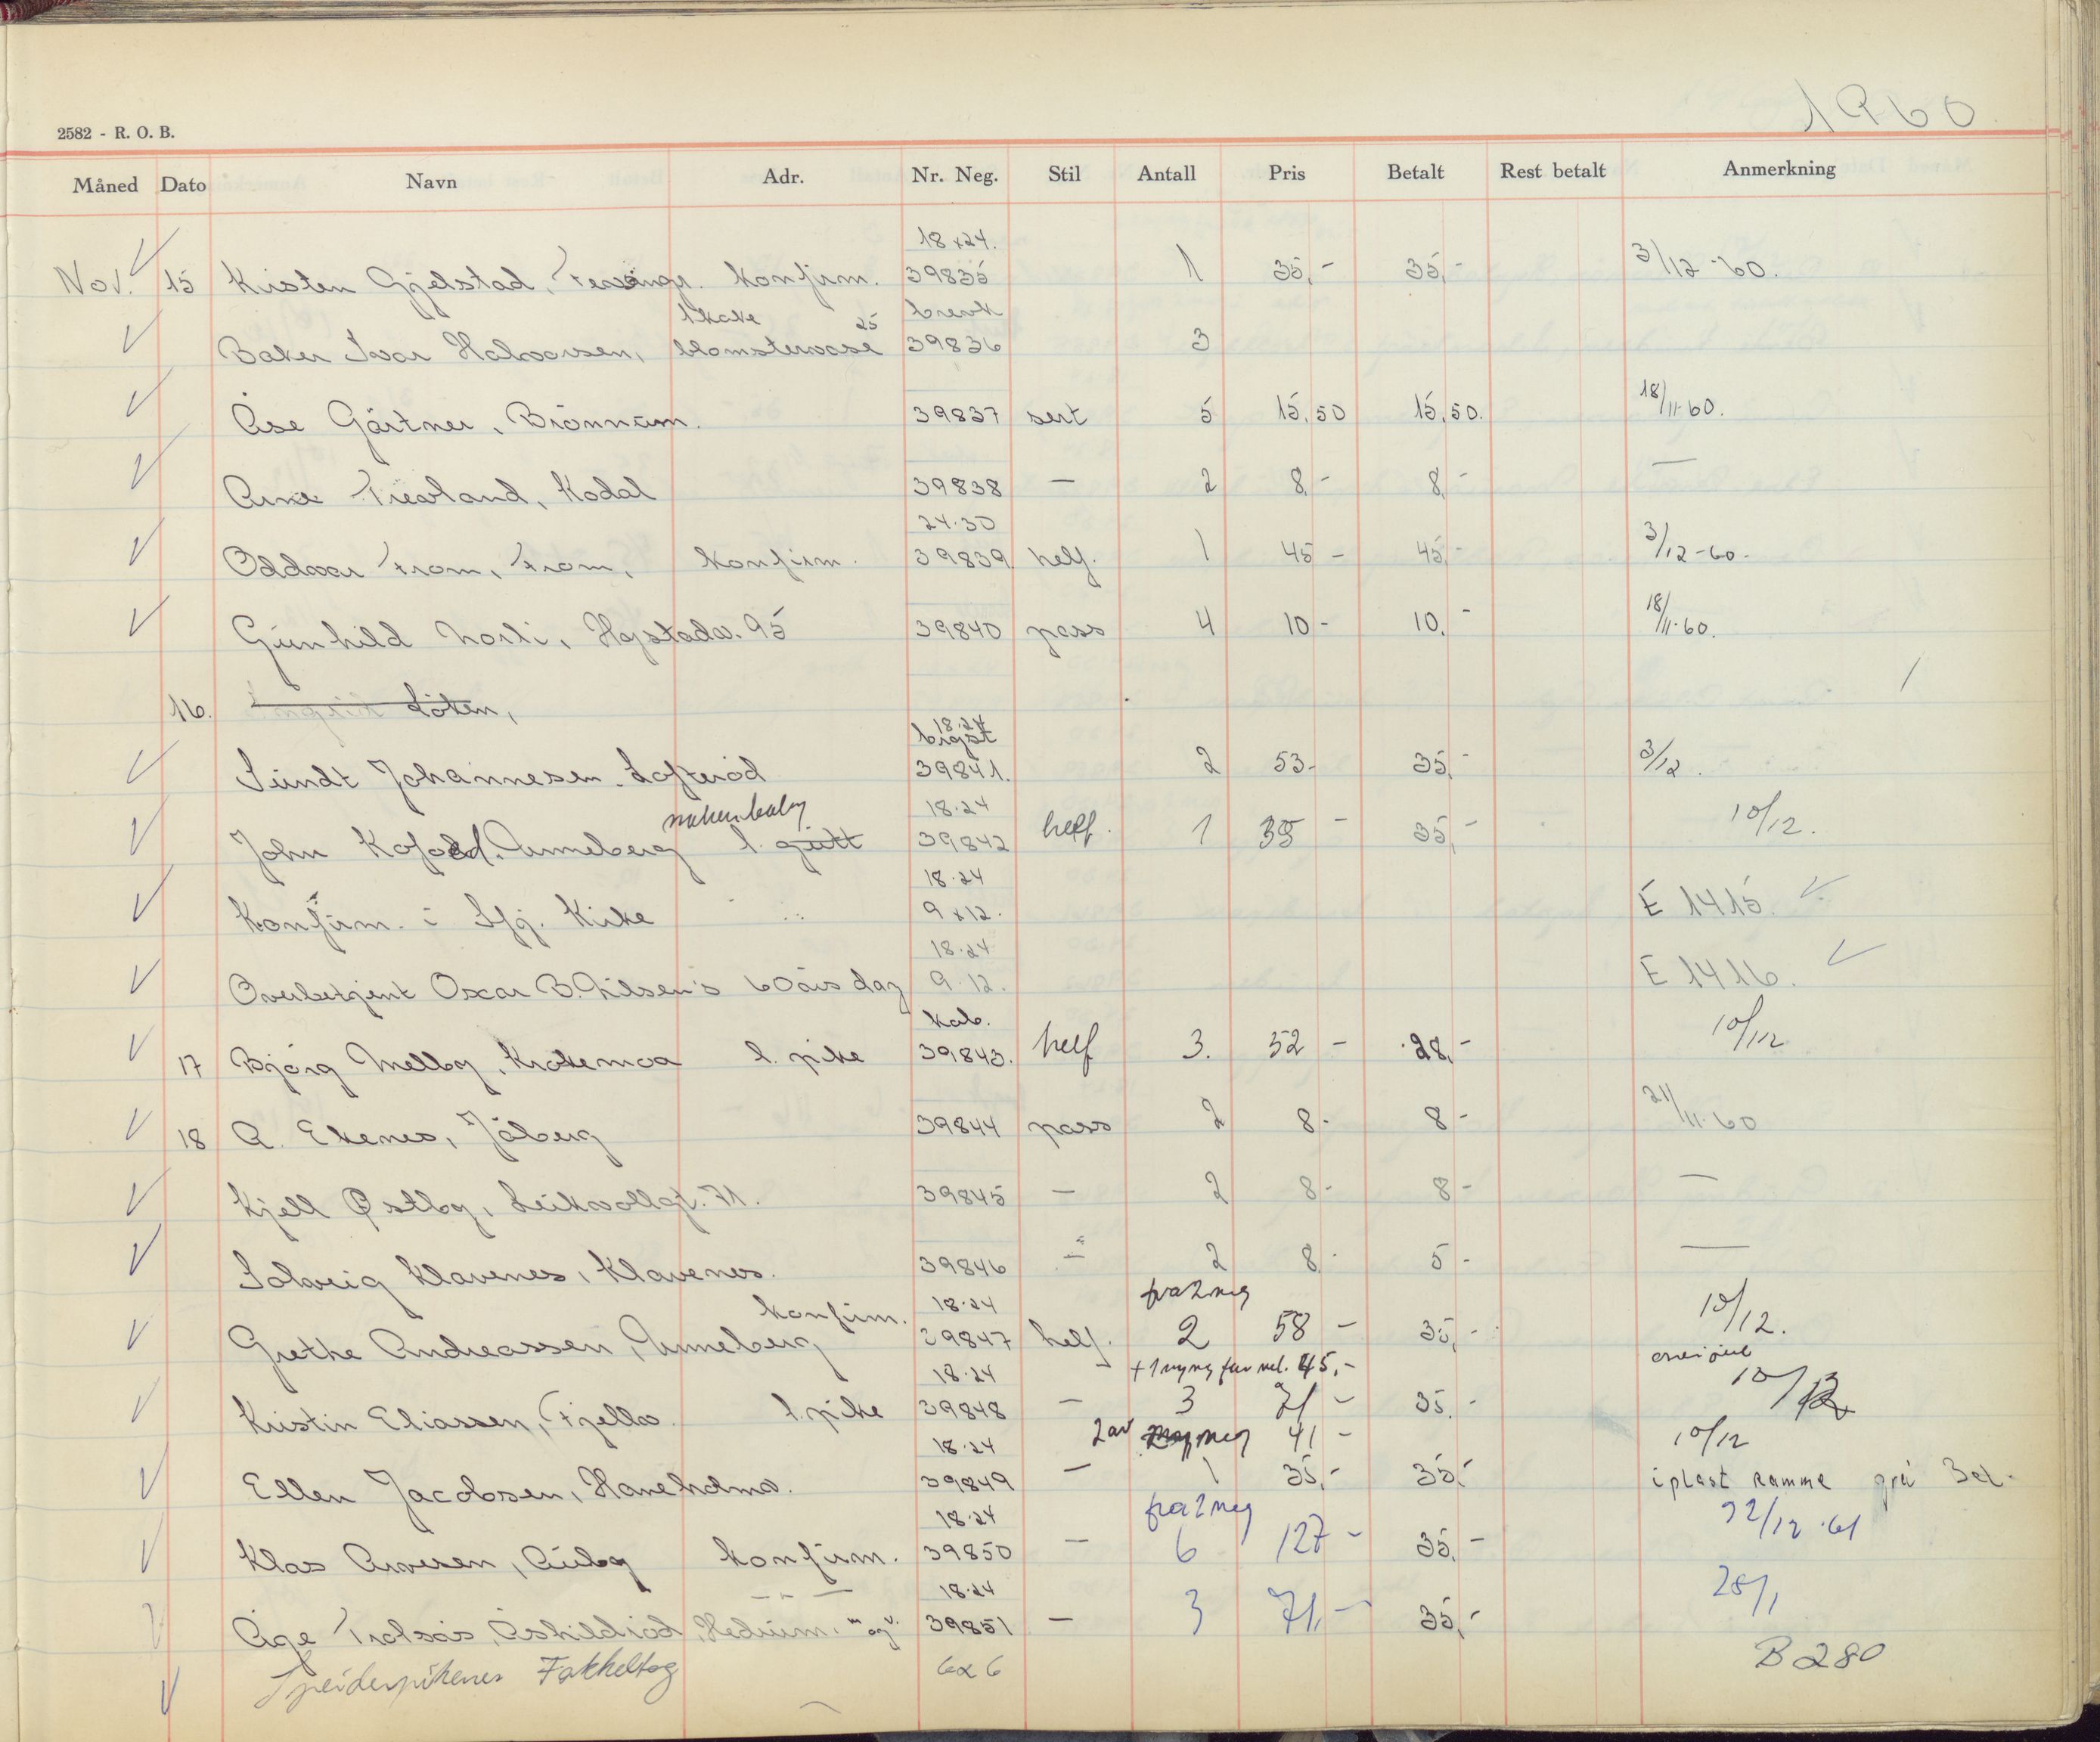 1960
2582 - R. O. B.
Måned Dato Navn Adr. Nr. Neg. Stil Antall Pris Betalt Rest betalt Anmerkning
18x24.
Nov. 15 Kirsten Gjelstad, konfirm. 39835 1 35,- 35,- 3/12-60.
1 kake 25 brevk
Baker Ivar Halvorsen, blomstervase 39836 3
Åse Gärtner, Brönnum. 39837 sert 5 15,50 15,50. 18/11-60.
Arne Trevland, Kodal 39838 — 2 8,- 8,- —
24.30
Oddvar Fram, Fram, konfirm. 39839 helf. 1 45- 45,- 3/12-60.
Gunhild Norli, Hystadv. 95 39840 pass 4 10- 10,- 18/11-60.
16. Ingrid Löken,
18.24
bryst
Sundt Johannesen. Lofteröd 39841. 2 53- 35,- 3/12.
nakenbaby 18.24
John Kofoed. Anneberg l. gutt 39842 helf. 1 35- 35,- 10/12.
18.24
Konfirm. i Sfj. Kirke 9x12. E 1415.
18.24
Overbetjent Oscar B. Nilsen's 60års dag 9.12. E 1416.
Kab.
17 Bjørg Melby, Krokemoa l. pike 39843. helf 3. 52- 28,- 10/12
18 A. Ekenes, Jåberg 39844 pass 2 8- 8- 21/11-60
Kjell Østby, Leikvollgt. 71. 39845 — 2 8- 8- —
Solveig Klavenes, Klavenes. 39846 — 2 8- 5- —
konfirm. 18.24 fra 2 neg
Grethe Andreassen, Anneberg 39847 helf. 2 58- 35,- 10/12.
18.24 + 1 ny neg 45,-
Kristin Eliassen, Fjellv. l. pike 39848 — 3 71- 35,- 10/12
18.24 2 av neg 41- 10/12
Ellen Jacobsen, Haneholmv. 39849 — 1 35,- 35,- i plast ramme grå
18.24 fra 2 neg
Klas Arvesen, Auby konfirm. 39850 — 6 127- 35,- 22/12.61
— — 18.24
Åge Trolsås, Åshildröd, Hedrum. m og v. 39851 — 3 71,- 35,- 28/1
Speiderpikenes Fakkeltog 6x6 B 280